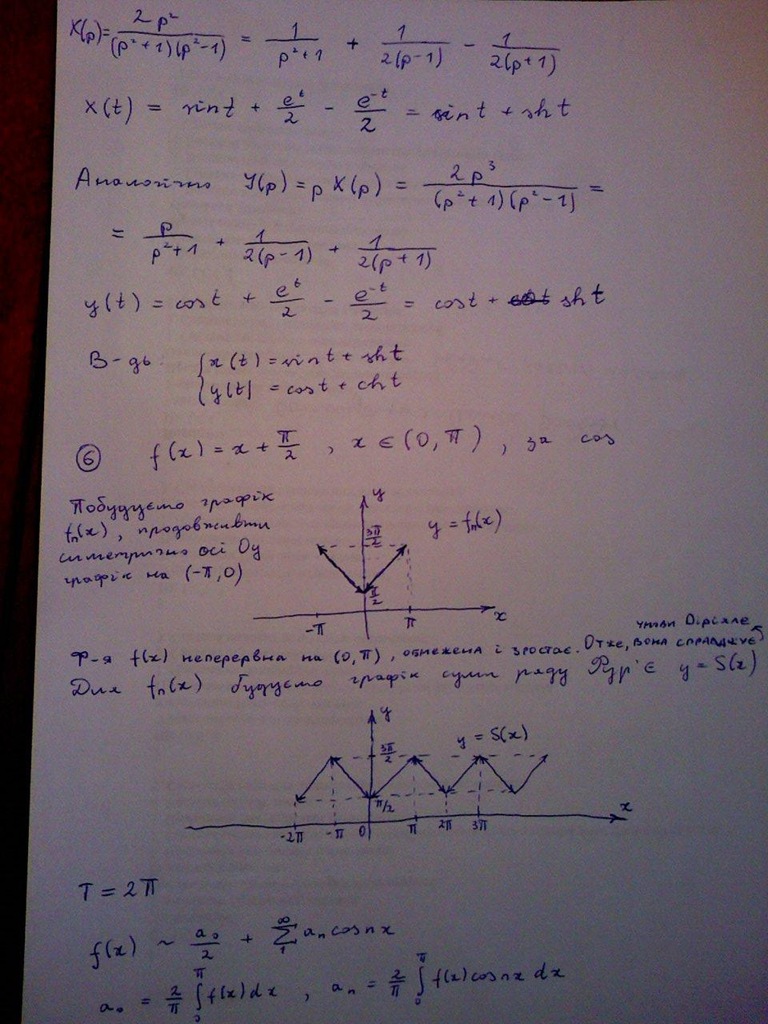 X(p) = 2p² / ((p²+1)(p²-1)) = 1/(p²+1) + 1/(2(p-1)) - 1/(2(p+1))
x(t) = sint + e^t/2 - e^-t/2 = sint + sht
Аналогічно Y(p) = pX(p) = 2p³ / ((p²+1)(p²-1)) =
= p/(p²+1) + 1/(2(p-1)) + 1/(2(p+1))
y(t) = cost + e^t/2 - e^-t/2 = cost + sht
В-дь: { x(t) = sint + sht
y(t) = cost + cht
⑥ f(x) = x + π/2 , x ∈ (0, π) , за cos
Побудуємо графік
fп(x), продовживши
симетрично осі Oy
графік на (-π, 0)
y
3π/2
y = fп(x)
π/2
-π π x
умови Діріхле
Ф-я f(x) неперервна на (0, π), обмежена і зростає. Отже, вона справджує
Для fп(x) будуємо графік суми ряду Фур'є y = S(x)
y
3π/2
y = S(x)
π/2
x
-2π -π 0 π 2π 3π
T = 2π
f(x) ~ a₀/2 + ∑₁^∞ aₙ cosnx
a₀ = 2/π ∫₀^π f(x)dx , aₙ = 2/π ∫₀^π f(x)cosnx dx